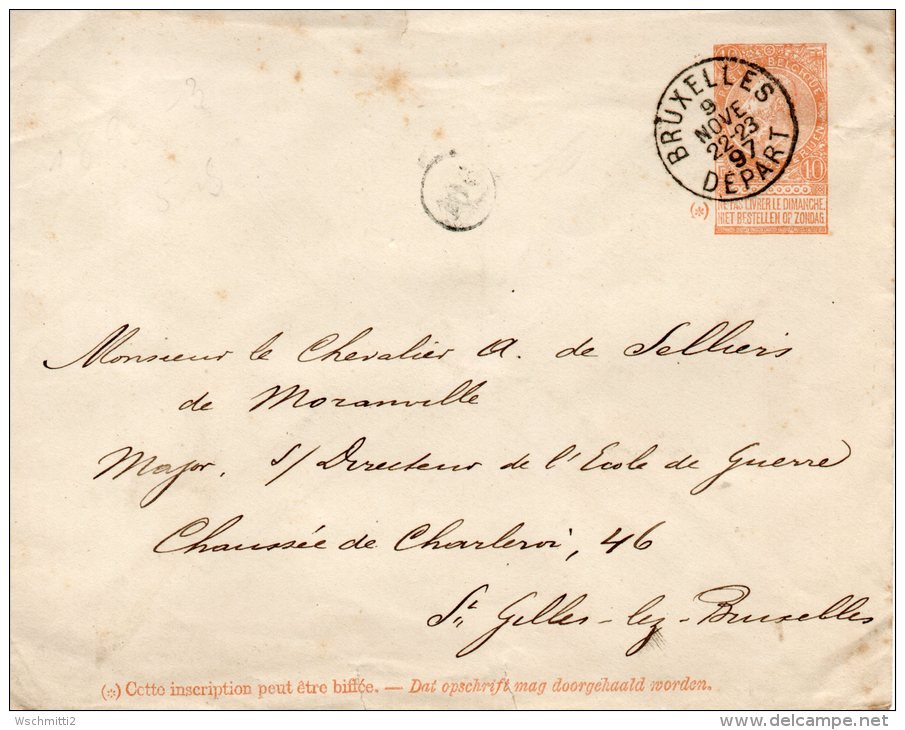 10
BELGIQUE
10
NE PAS LIVRER LE DIMANCHE.
NIET BESTELLEN OP ZONDAG
(*)
BRUXELLES
9
NOVE
22-23
97
DÉPART
Monsieur le Chevalier A. de Selliers
de Moranville
Major. S/ Directeur de l'Ecole de Guerre
Chaussée de Charleroi, 46
St Gilles-lez-Bruxelles
(*) Cette inscription peut être biffée. — Dat opschrift mag doorgehaald worden.
Wschmitti2
delcampe.net